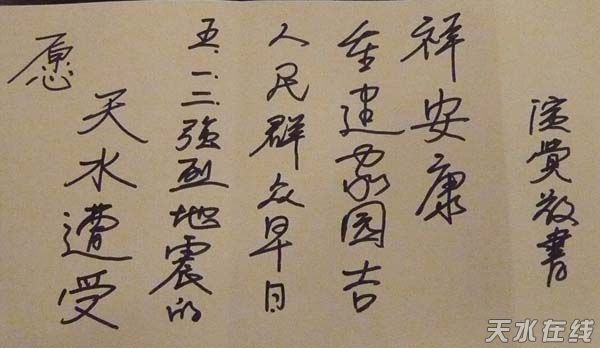 愿
天水遭受
五.一二強烈地震的
人民群众早日
重建家园吉
祥安康
演觉敬書
天水在线